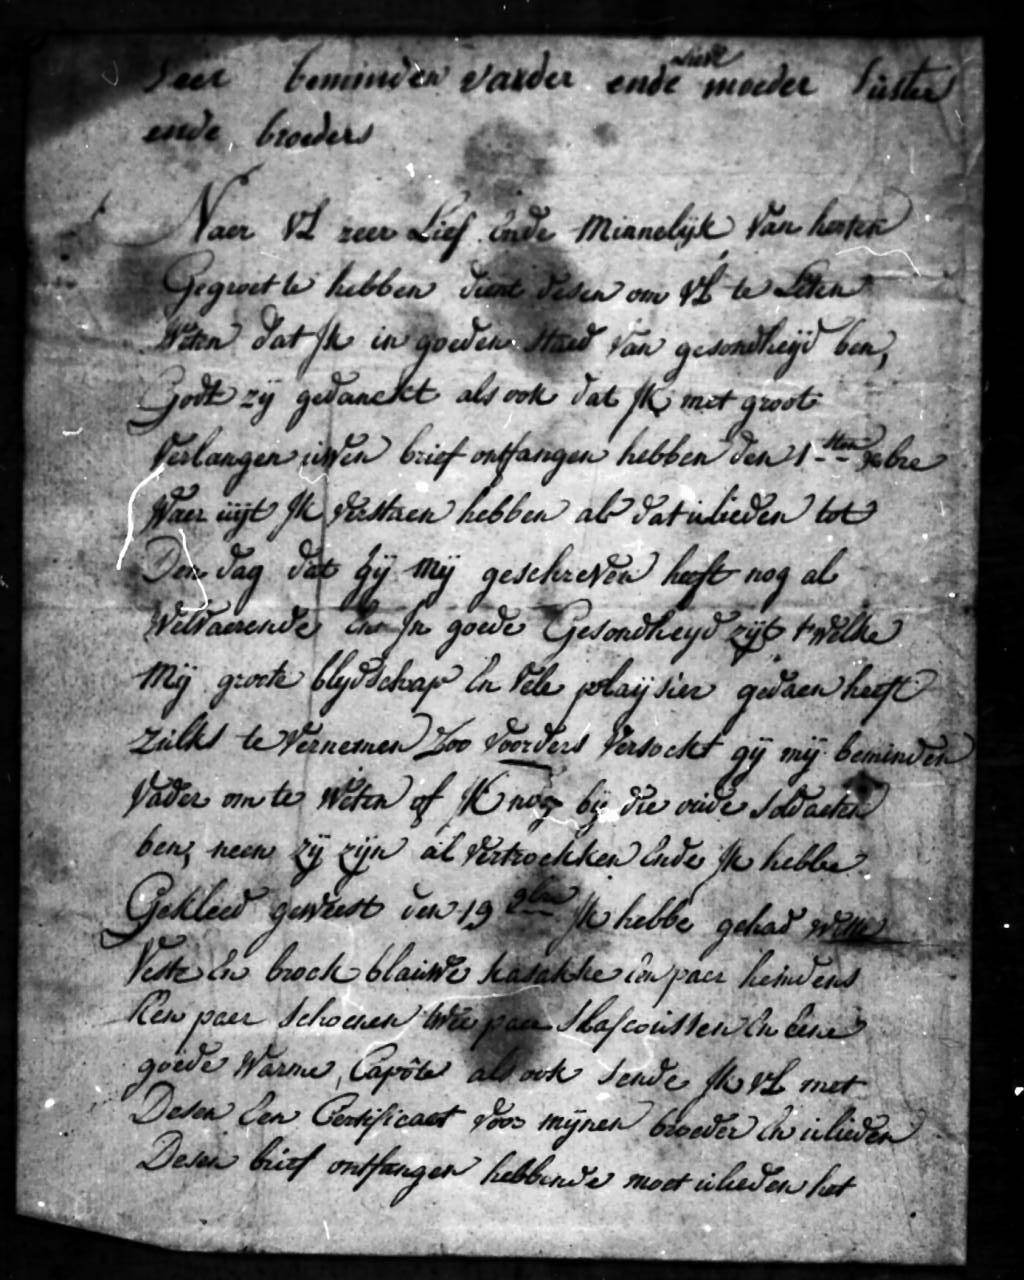 seer beminden vaeder ende lieve moeder suster
ende broeders
Naer VL zeer Lief Ende Minnelijk Van herten
Gegroet te hebben dient desen om VL te Laten
Weten dat Jk in goeden staed Van gesondheijd ben,
Godt zij gedanckt als ook dat Jk met groot
Verlangen uwen brief ontfangen hebben den 1sten xbre
Waer uijt Jk Verstaen hebben als dat ulieden tot
Den dag dat gij Mij geschreven heeft nog al
Welvaerende En Jn goede Gesondheyd zijt t'welke
Mij groote blydschap En Vele plaijsier gedaen heeft
Zulks te Vernemen Zoo Voorders Versockt gij mij beminden
Vader om te Weten of Jk nog bij die oude soldaeten
ben, neen zij zijn al Vertrockken Ende Jk hebbe
Gekleed geweest den 19 9bre Jk hebbe gehad Witte
Veste En brock blauwe kasakke Een paer hemdens
Een paer schoenen twee paer Slafcoussen En Eene
goede Warme Capôte als ook sende Jk VL met
Desen Een Certificaet Voor mijnen broeder En ulieden
Desen brief ontfangen hebbende moet ulieden het